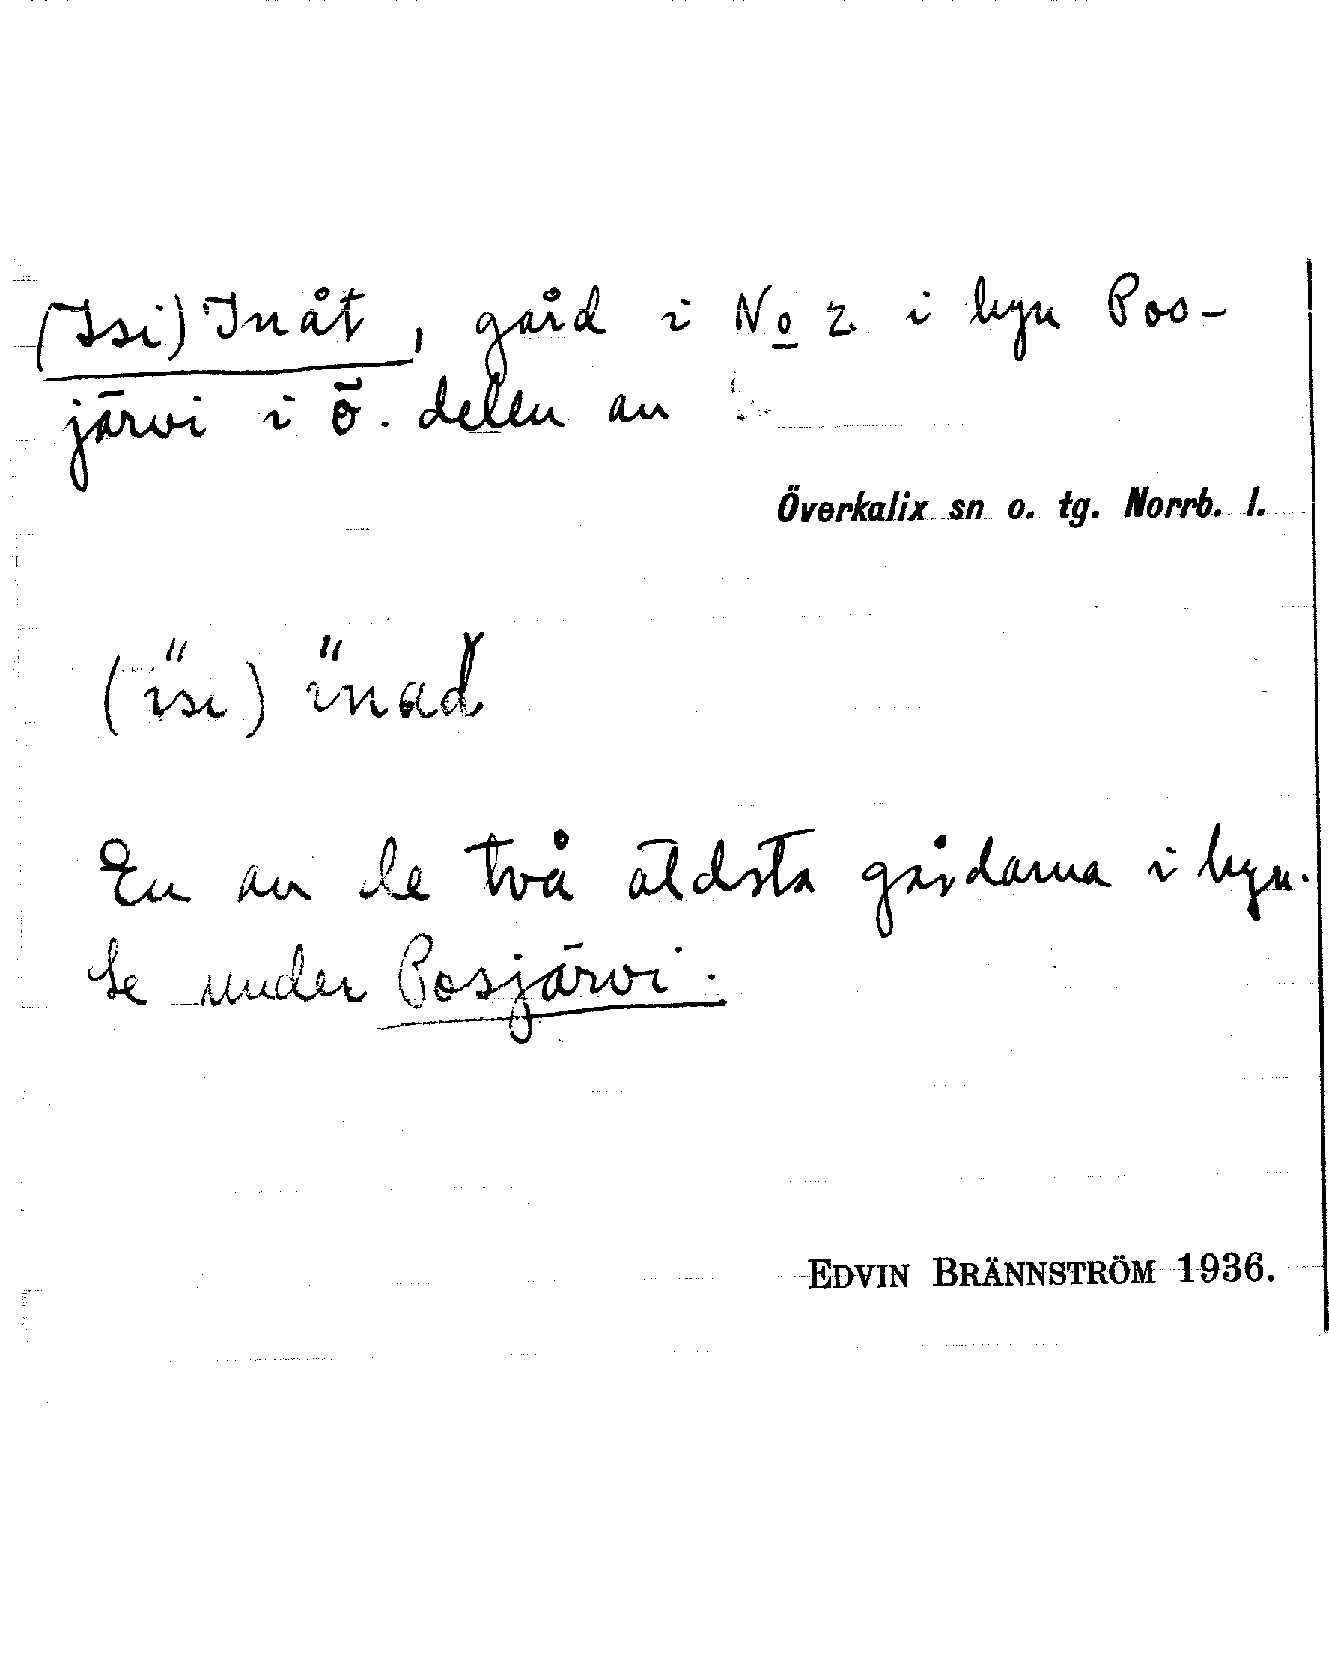 (Isi) Inåt, gård i No 2 i byn Pos-
järvi i ö. delen av
Överkalix sn o. tg. Norrb. l.
(isi) inad
En av de två äldsta gårdarna i byn.
Se under Posjärvi.
EDVIN BRÄNNSTRÖM 1936.